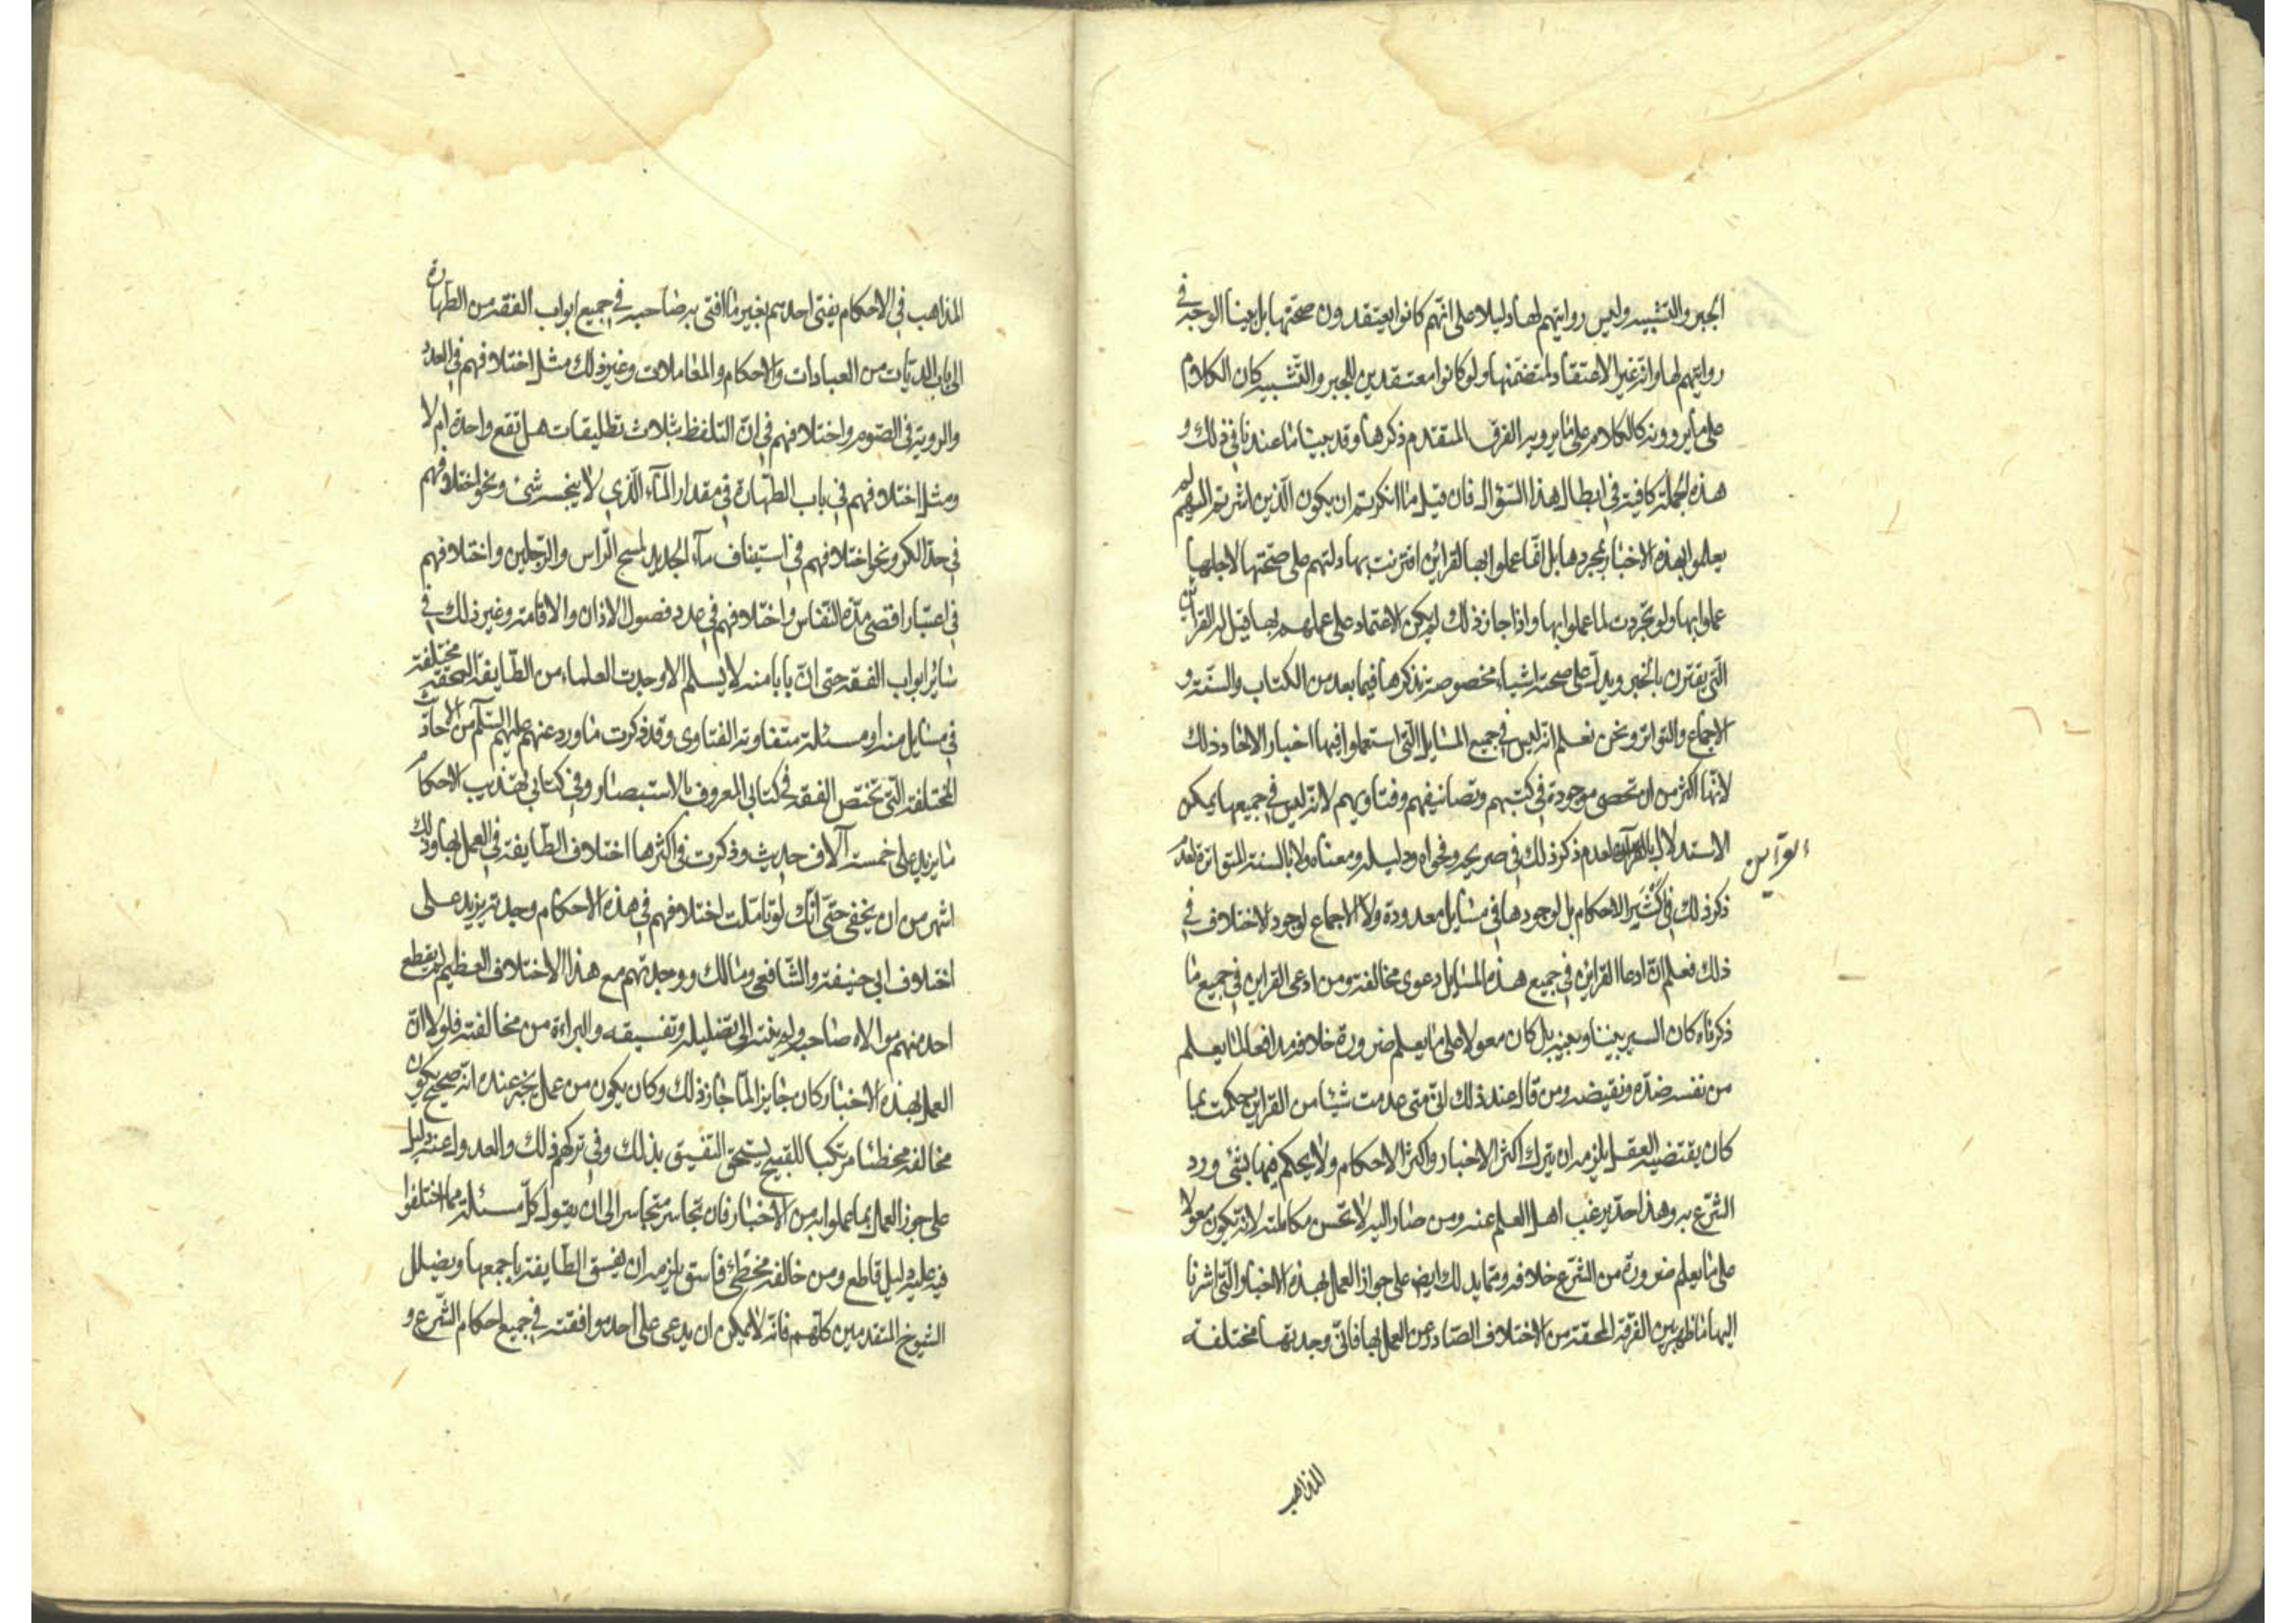 الجبر والتشبيه وليس روايتهم لها دليلا على انهم كانوا يعتقدون صحتها بل بينا الوجه في
روايتهم لها وانه غير الاعتقاد لمتضمنها ولو كانوا معتقدين للجبر والتشبيه كان الكلام
على ما يروونه كالكلام على ما يرويه الفرق المتقدم ذكرها وقد بينا ما عندنا في ذلك و
هذه الجملة كافية في ابطال هذا السّؤال فان قيل ما انكرتم ان يكون الّذين اشرتم اليهم لم
يعملوا بهذه الاخبار بمجردها بل انّما عملوا بها لقرائن اقترنت بها دلتهم على صحّتها لاجلها
عملوا بها ولو تجرّدت لما عملوا بها واذا جاز ذلك لم يكن الاعتماد على عملهم بها قيل لهم القرائن
الّتي يقترن بالخبر ويدلّ على صحته اشياء مخصوصة نذكرها فيما بعد من الكتاب والسنّة و
الاجماع والتواتر ونحن نعلم انه ليس في جميع المسائل الّتي استعملوا فيها اخبار الاحاد ذلك
لانّها اكثر من ان تحصى موجودة في كتبهم وتصانيفهم وفتاويهم لانّه ليس في جميعها يمكن
الاستدلال بالقرآن لعدم ذكر ذلك في صريحه وفحواه ودليله ومعناه ولا بالسنة المتواترة لعدم
القرآين
ذكر ذلك في كَثيَر الاحكام بل لوجودها في مسائل معدودة ولا الاجماع لوجود الاختلاف في
ذلك فعلم انّ ادعا القراين في جميع هذه المسايل دعوى مخالفة ومن ادعى القراين في جميع ما
ذكرناه كان السبر بيننا وبينه بل كان معولا على ما يعلم ضرورة خلافه مدافعا لما يعلم
من نفسه ضدّه ونقيضه ومن قال عند ذلك انّي متى عدمت شيئا من القراين حكمت بما
كان يقتضيه العقل يلزمه ان يترك اكثر الاخبار واكثر الاحكام ولا يحكم فيها بشئ ورد
الشرّع به وهذا حدّ يرغب اهل العلم عنه ومن صار اليه لا تحسن مكالمته لانّه يكون معولا
على ما يعلم ضرورة من الشرّع خلافه وممّا يدلك ايضا على جواز العمل بهذه الاخبار الّتي اشرنا
اليها ما ظهر بين الفرقة المحقة من الاختلاف الصّادر عن العمل بها فانّي وجدتها مختلفة
المذاهب
المذاهب في الاحكام يفتى احدهم بغير ما افتى به صاحبه في جميع ابواب الفقه من الطهارة
الى باب الديات من العبادات والاحكام والمعاملات وغير ذلك مثل اختلافهم في العدد
والروية في الصّوم واختلافهم في انّ التلفظ بثلاث تطليقات هل تقع واحدة ام لا
ومثل اختلافهم في باب الطّهارة في مقدار المآء الّذي لا ينجسه شئ ونحو اختلافهم
في حدّ الكر ونحو اختلافهم في استيناف مآء الجديد لمسح الرّاس والرّجلين واختلافهم
في اعتبار اقصى مدّة النّفاس واختلافهم في عدد فصول الاذان والاقامة وغير ذلك في
سائر ابواب الفقه حتى انّ بابا منه لا يسلم الا وجدت العلماء من الطّايفة المحقة مختلفة
في مسايل منه او مسئلة متفاوتة الفتاوى وقد ذكرت ما ورد عنهم عليهم السّلم من الاحاديث
المختلفة الّتي تختص الفقه في كتابي المعروف بالاستبصار وفي كتابي تهذيب الاحكام
ما يزيد على خمسة آلاف حديث وذكرت في اكثرها اختلاف الطّايفة في العمل بها وذلك
اشهر من ان يخفى حتّى انّك لو تاملت اختلافهم في هذه الاحكام وجدته يزيد على
اختلاف ابي حنيفة والشّافعى ومالك ووجدتهم مع هذا الاختلاف العظيم لم يقطع
احد منهم موالاة صاحبه ولم ينته الى تضليله وتفسيقه والبراءة من مخالفته فلولا انّ
العمل بهذه الاخبار كان جايزا لما جاز ذلك وكان يكون من عمل بخبر عنده انّه صحيح يكون
مخالفه مخطئا مرتكبا للقبيح يستحق التفسيق بذلك وفي تركهم ذلك والعدول عنه دليل
على جواز العمل بما عملوا به من الاخبار فان تجاسر متجاسر الى ان يقول كلّ مسئلة مما اختلفوا
فيه عليه دليل قاطع ومن خالفه مخطئ فاسق يلزمه ان يفسق الطّايفة باجمعها ويضلل
الشيوخ المتقدمين كلّهم فانّه لا يمكن ان يدعى على احد موافقته في جميع احكام الشّرع و